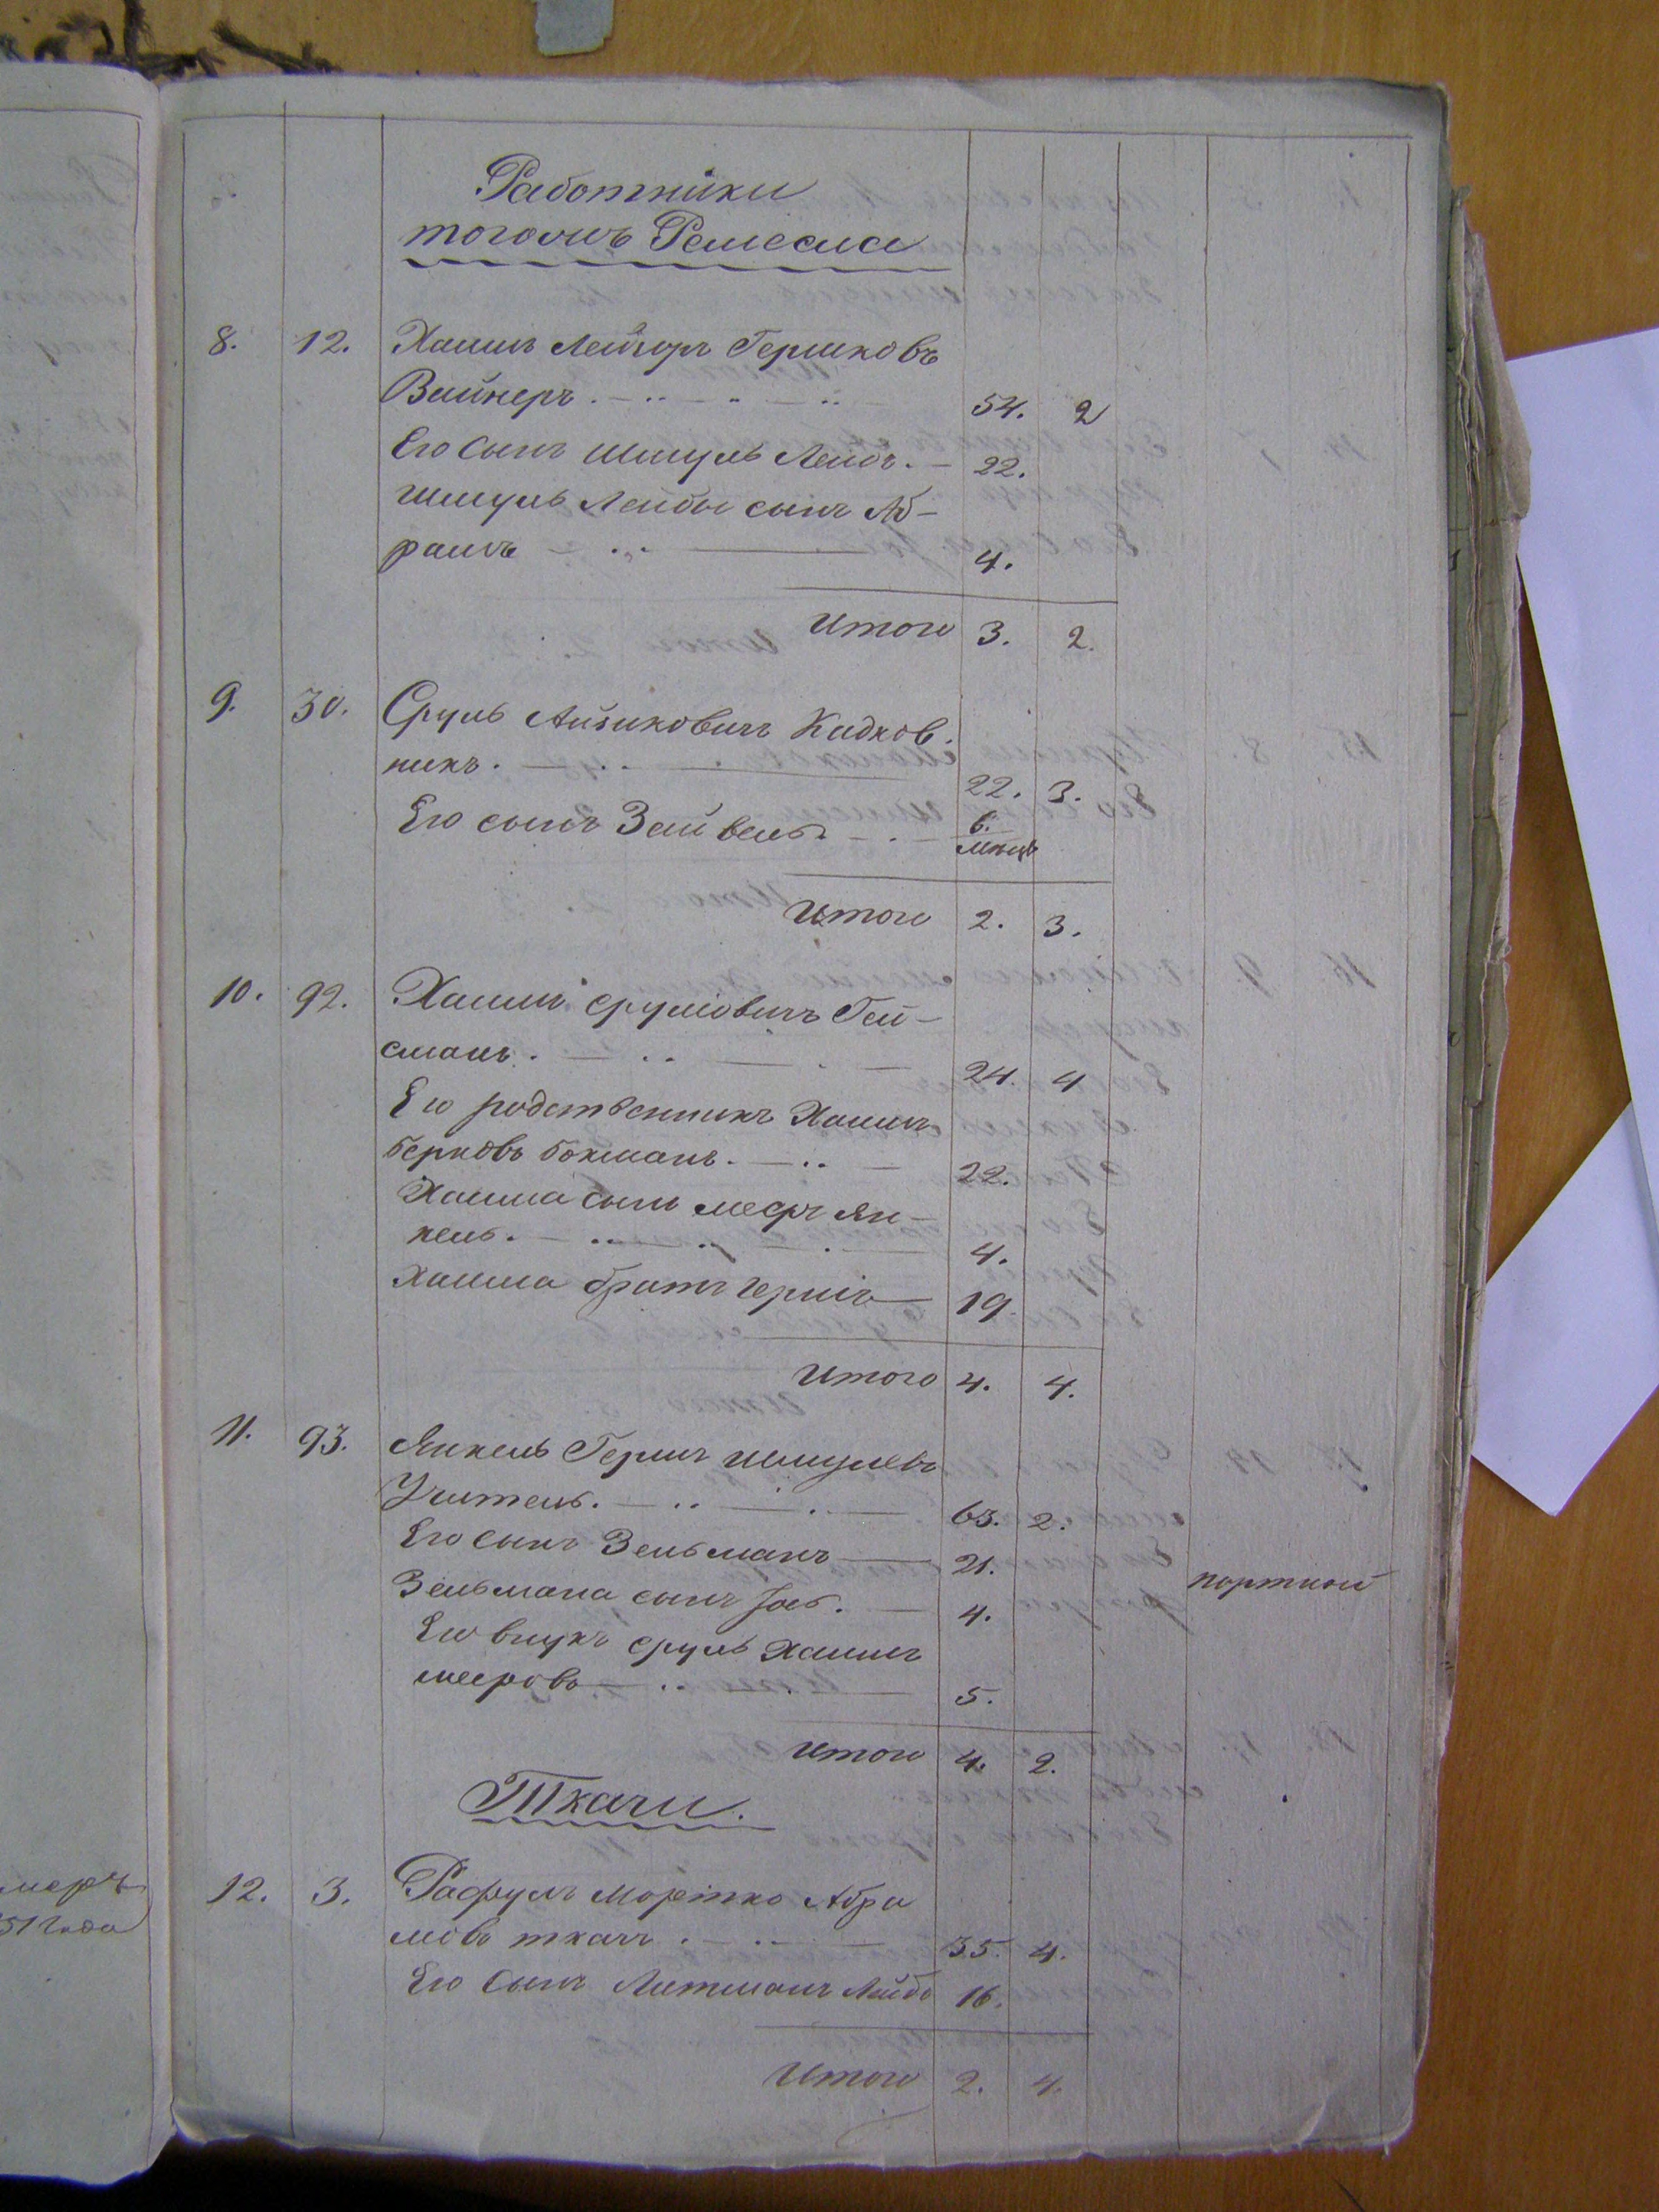 Работники
тогожъ Ремесла
8. 12. Хаимъ Лейзоръ Гершковъ
Вайнеръ. 54. 2
Его сынъ Шмуль Лейбъ. 22.
Шмуль Лейбы сынъ Аб-
рамъ 4.
Итого 3. 2.
9. 30. Сруль Айзиковичъ Кадков-
никъ. 22. 3.
Его сынъ Зейвель. 6.
мѣсць
Итого 2. 3.
10. 92. Хаимъ Срулiовичъ Гей-
сманъ. 24. 4
Его родственникъ Хаимъ
Берковъ Бокманъ. 22.
Хаима сынъ Мееръ Ян-
кель. 4.
Хаима братъ Гершъ 19.
Итого 4. 4.
11. 93. Янкель Гершъ Шмулевъ
Учитель. 63. 2.
Его сынъ Зельманъ 21.
Зельмана сынъ Iось. 4. портной
Его внукъ Сруль Хаимъ
Мееровъ 5.
Итого 4. 2.
Ткачи.
12. 3. Рафулъ Мортко Абра
мовъ ткачъ. 35. 4.
Его сынъ Литманъ Лейбъ 16.
Итого 2. 4.
меръ
51 Года